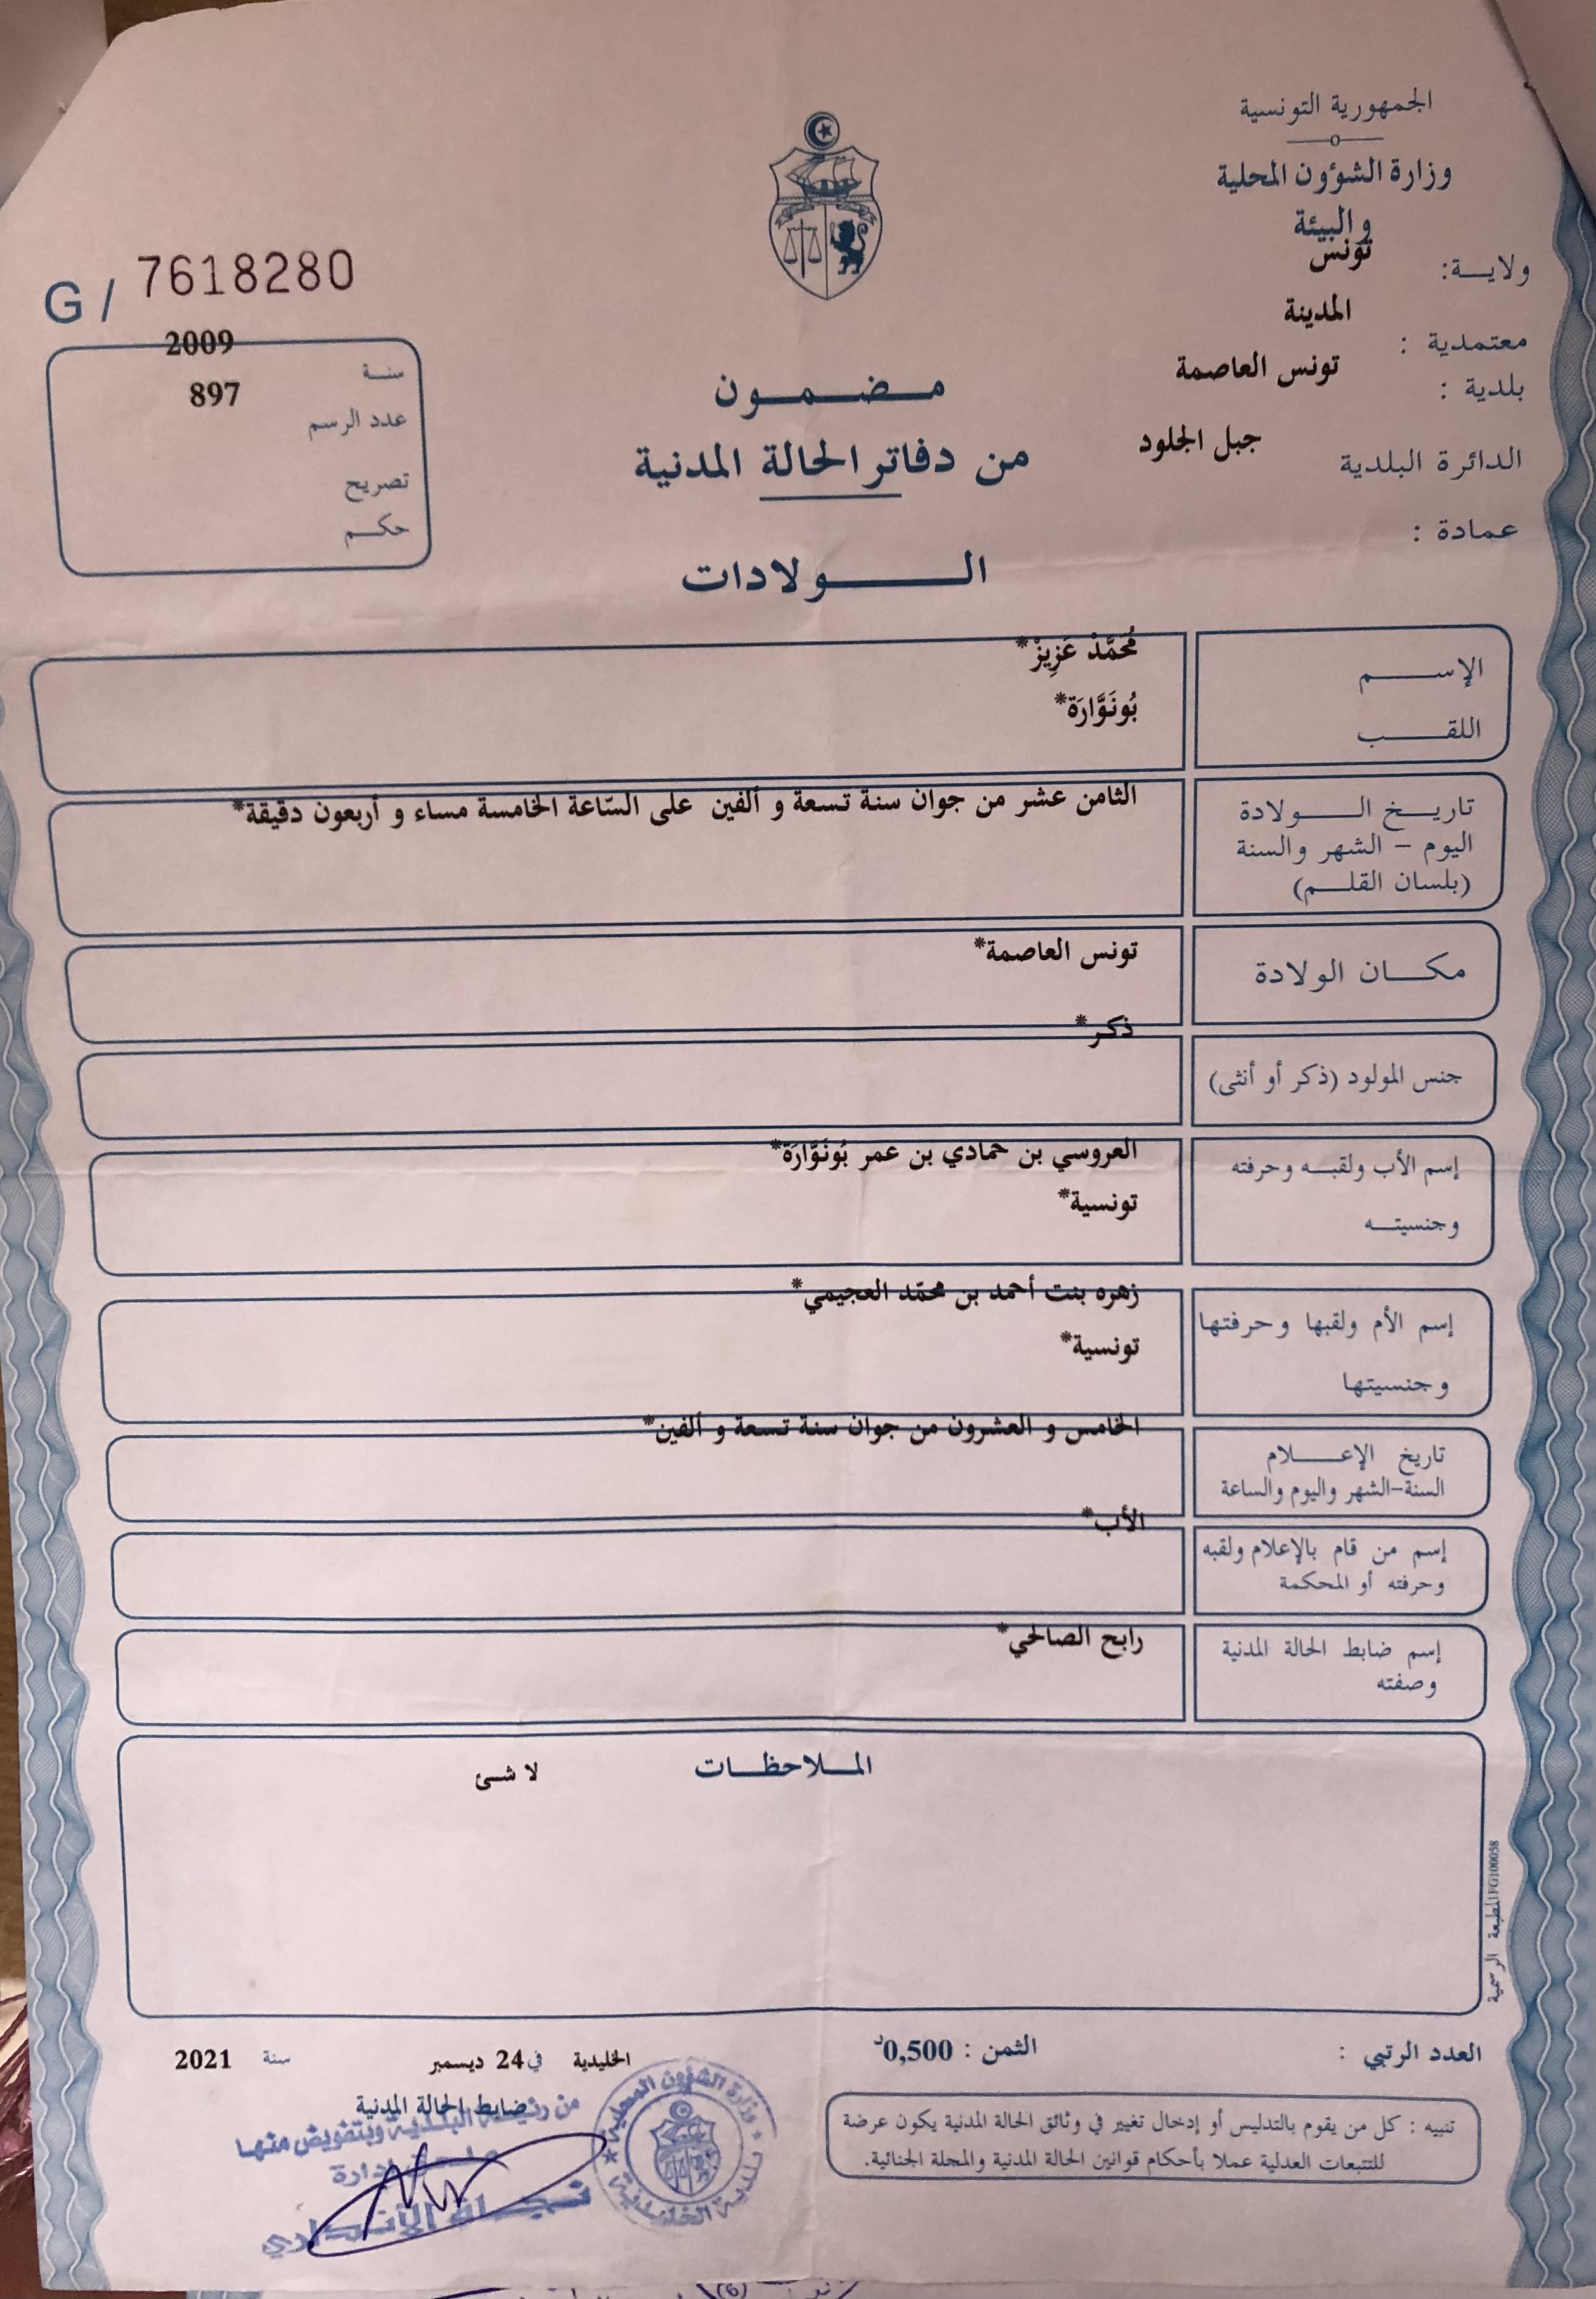 الجمهورية التونسية
وزارة الشؤون المحلية
والبيئة
ولاية: تونس
معتمدية : المدينة
بلدية : تونس العاصمة
الدائرة البلدية جبل الجلود
عمادة :
G / 7618280
سنة 2009
عدد الرسم 897
تصريح
حكم
مضمون
من دفاتر الحالة المدنية
الولادات
الإسم مُحَمَّدْ عَزِيزْ*
اللقب بُونَوَّارَة*
تاريخ الولادة
اليوم – الشهر والسنة
(بلسان القلم)
الثامن عشر من جوان سنة تسعة و ألفين على السّاعة الخامسة مساء و أربعون دقيقة*
مكان الولادة تونس العاصمة*
جنس المولود (ذكر أو أنثى) ذكر*
إسم الأب ولقبه وحرفته
وجنسيته
العروسي بن حمادي بن عمر بُونَوَّارَة*
تونسية*
إسم الأم ولقبها وحرفتها
وجنسيتها
زهره بنت أحمد بن محمّد العجيمي*
تونسية*
تاريخ الإعلام
السنة-الشهر واليوم والساعة
الخامس و العشرون من جوان سنة تسعة و ألفين*
إسم من قام بالإعلام ولقبه
وحرفته أو المحكمة
الأب*
إسم ضابط الحالة المدنية
وصفته
رابح الصالحي*
الملاحظات
لا شئ
المطبعة الرسمية IFG100058
العدد الرتبي :
الثمن : 0,500د
الخليدية في 24 ديسمبر سنة 2021
ضابط الحالة المدنية
من رئيسة البلدية وبتفويض منها
وزارة الشؤون المحلية
تنبيه : كل من يقوم بالتدليس أو إدخال تغيير في وثائق الحالة المدنية يكون عرضة
للتتبعات العدلية عملا بأحكام قوانين الحالة المدنية والمجلة الجنائية.